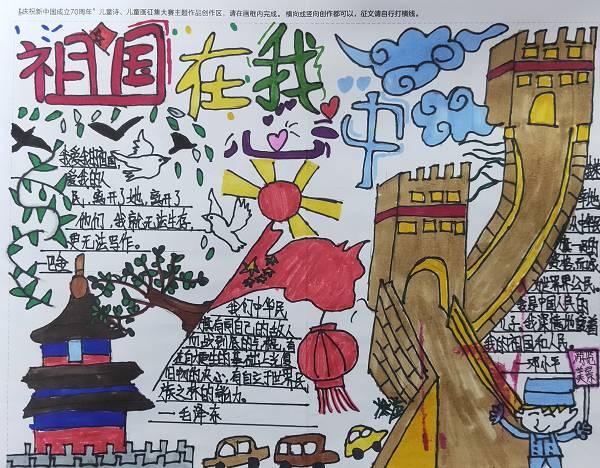 "庆祝新中国成立70周年"儿童诗、儿童画征集大赛主题作品创作区，请在画框内完成。横向或竖向创作都可以，征文请自行打横线。
祖国在我
心中
我爱我的祖国，
爱我的人
民，离开了她，离开了
他们，我就无法生存，
更无法写作。
巴金
我们中华民
族有同自己的敌人
血战到底的气概，有
在自力更生的基础上光复
旧物的决心，有自立于世界民
族之林的能力。
—毛泽东
世界公民。
我是中国人民的
儿子，我深情地爱着
我的祖国和人民。
邓小平